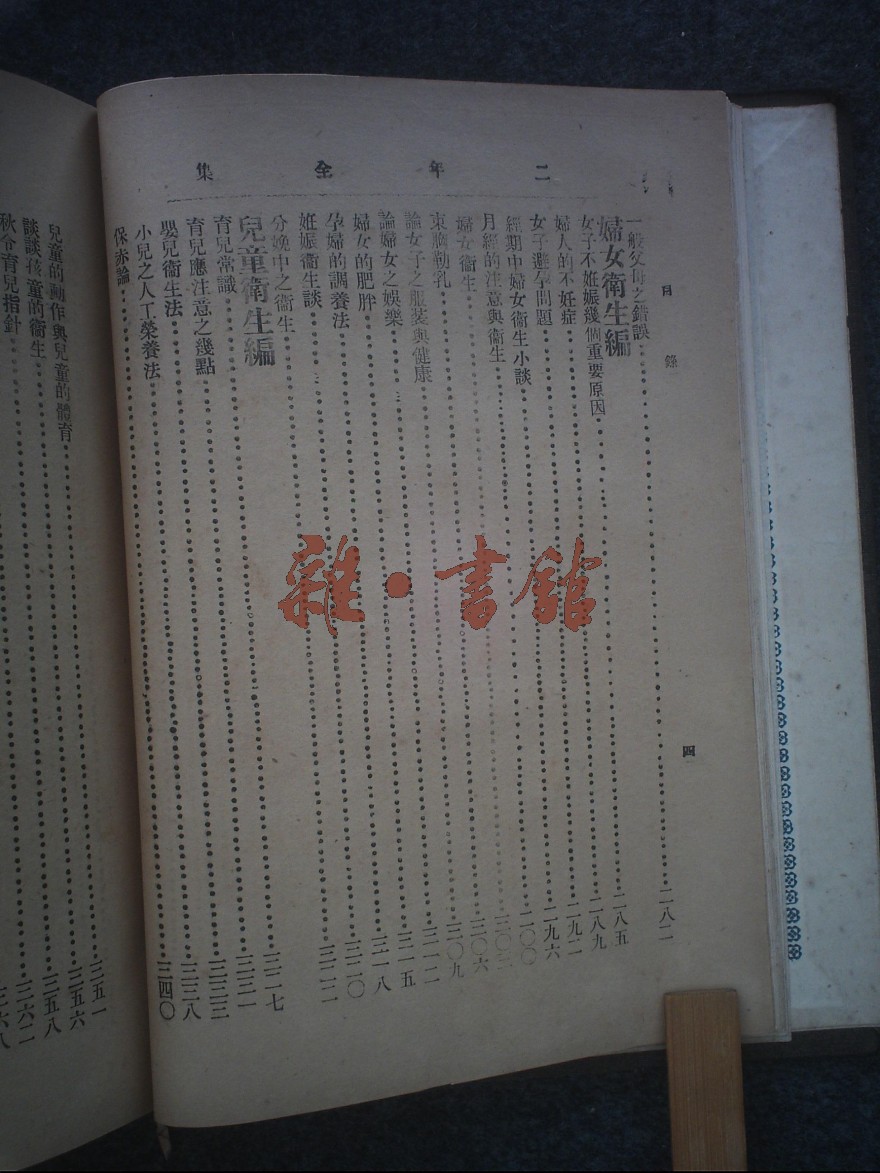 二年全集
目錄
四
一般父母之錯誤……二八二
婦女衛生編
女子不妊娠幾個重要原因……二八五
婦人的不妊症……二八九
女子避孕問題……二九二
經期中婦女衛生小談……二九六
月經的注意與衛生……三〇〇
婦女衛生……三〇三
束胸勒乳……三〇六
論女子之服裝與健康……三〇九
論婦女之娛樂……三一二
婦女的肥胖……三一五
孕婦的調養法……三一八
妊娠衛生談……三二〇
分娩中之衛生……三二二
兒童衛生編
育兒常識……三二七
育兒應注意之幾點……三三一
嬰兒衛生法……三三三
小兒之人工榮養法……三三八
保赤論……三四〇
兒童的動作與兒童的體育……三五一
談談孩童的衛生……三五六
秋令育兒指針……三五八
三六二
三六八
雜·書館